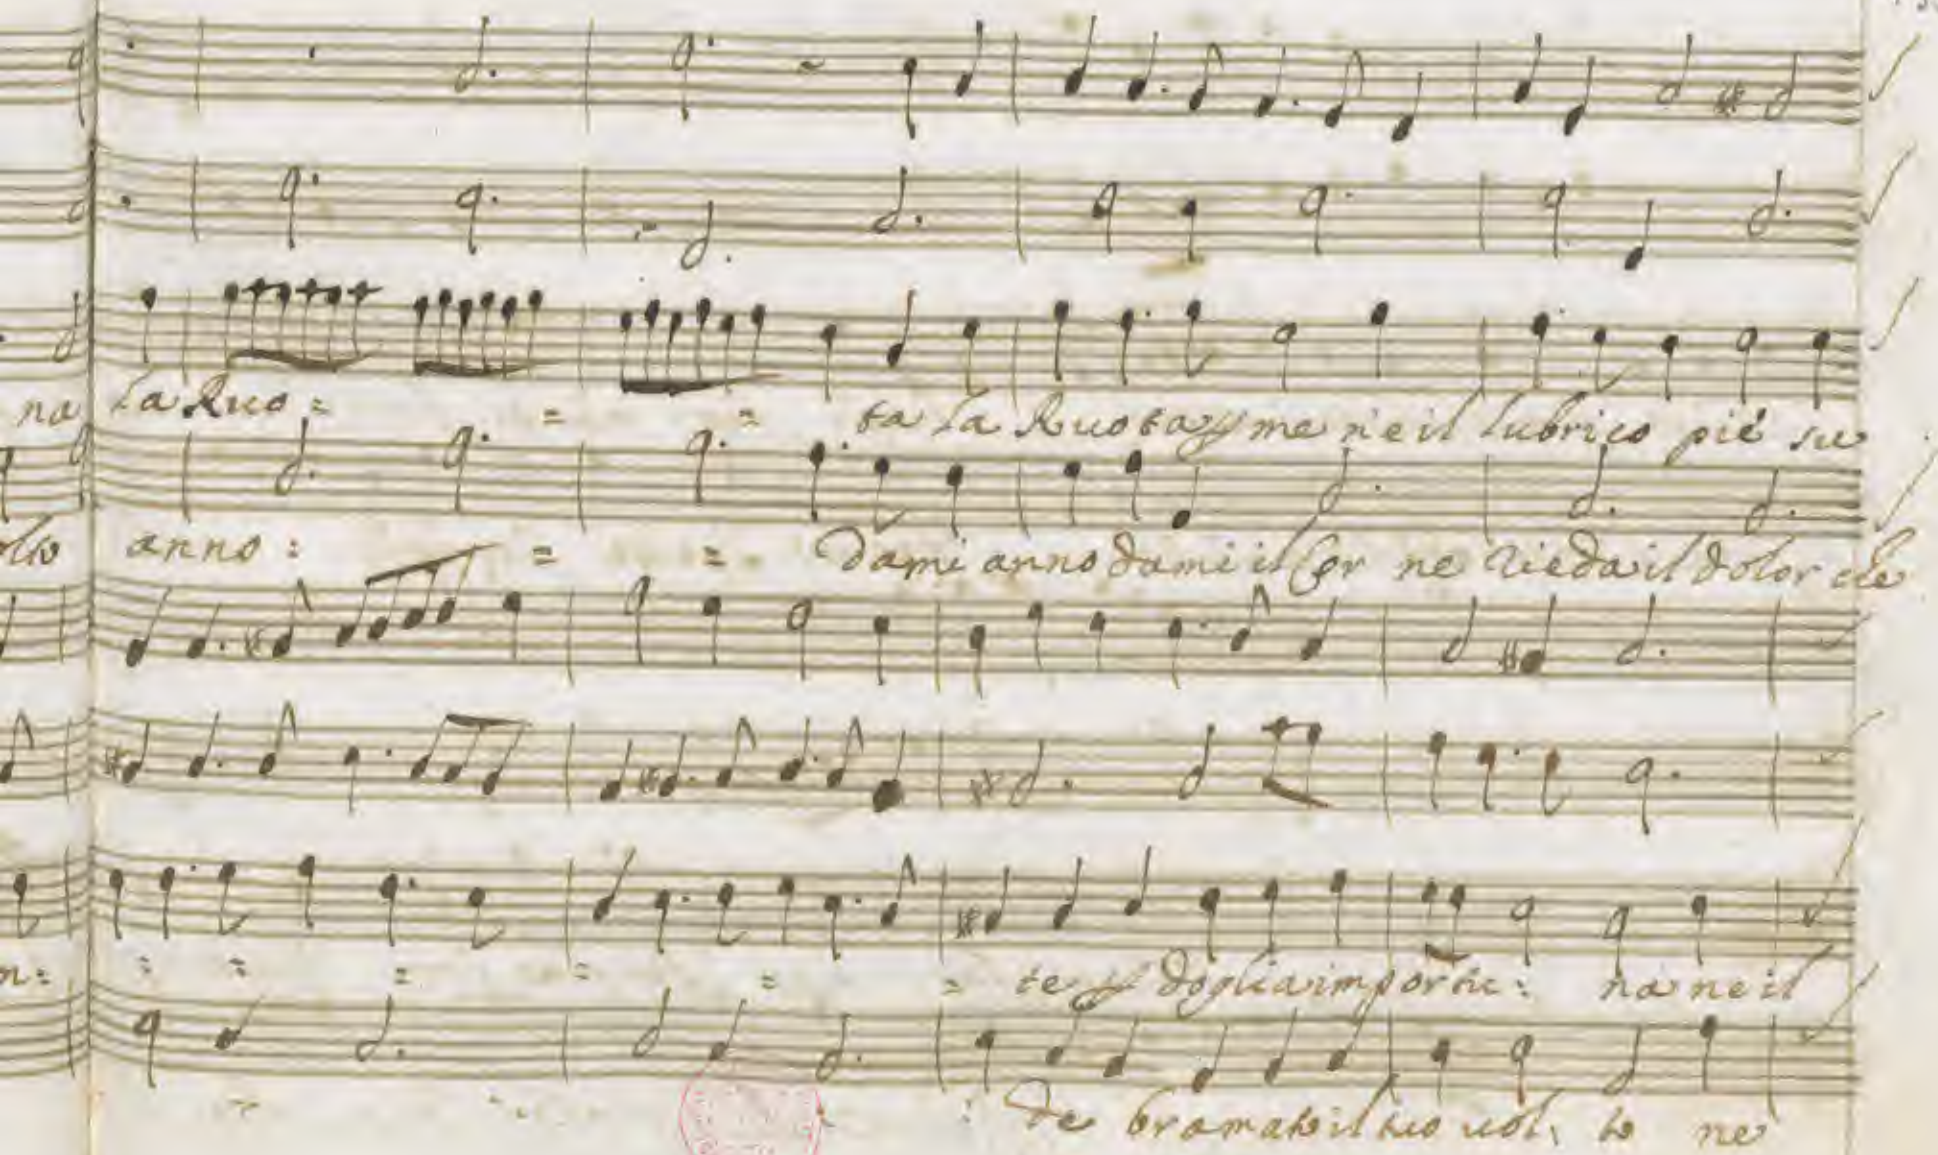 na la Ruo = = = ta la Ruota me ne il lubrico piè su
anno : = = Dami anno dami il Cor ne rieda il dolor che
n: = = = = = = te doglia importu: na ne il
de bramato il tuo uol: to ne